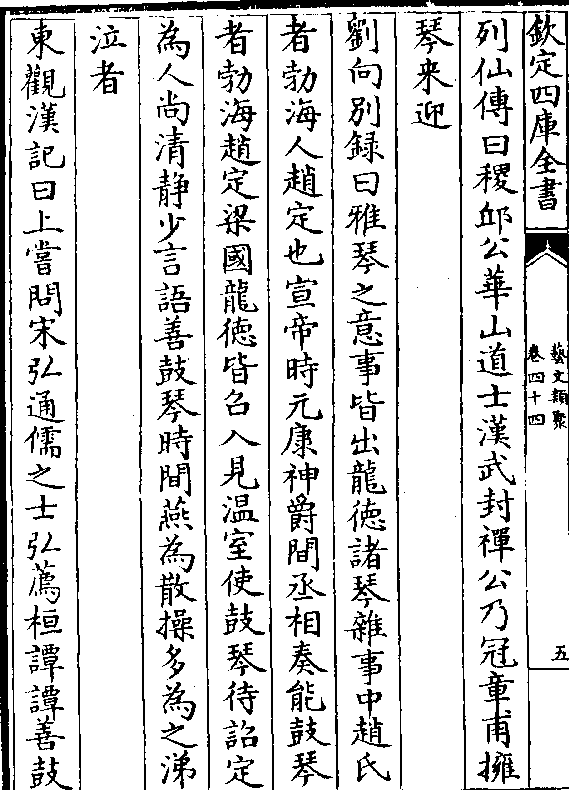 欽定四庫全書
藝文類聚
卷四十四
五
列仙傳曰稷邱公華山道士漢武封禪公乃冠章甫擁
琴来迎
劉向別録曰雅琴之意事皆出龍徳諸琴雜事中趙氏
者勃海人趙定也宣帝時元康神爵間丞相奏能鼓琴
者勃海趙定梁國龍徳皆召入見温室使鼓琴待詔定
為人尚清静少言語善鼓琴時間燕為散操多為之涕
泣者
東觀漢記曰上嘗問宋弘通儒之士弘薦桓譚譚善鼓